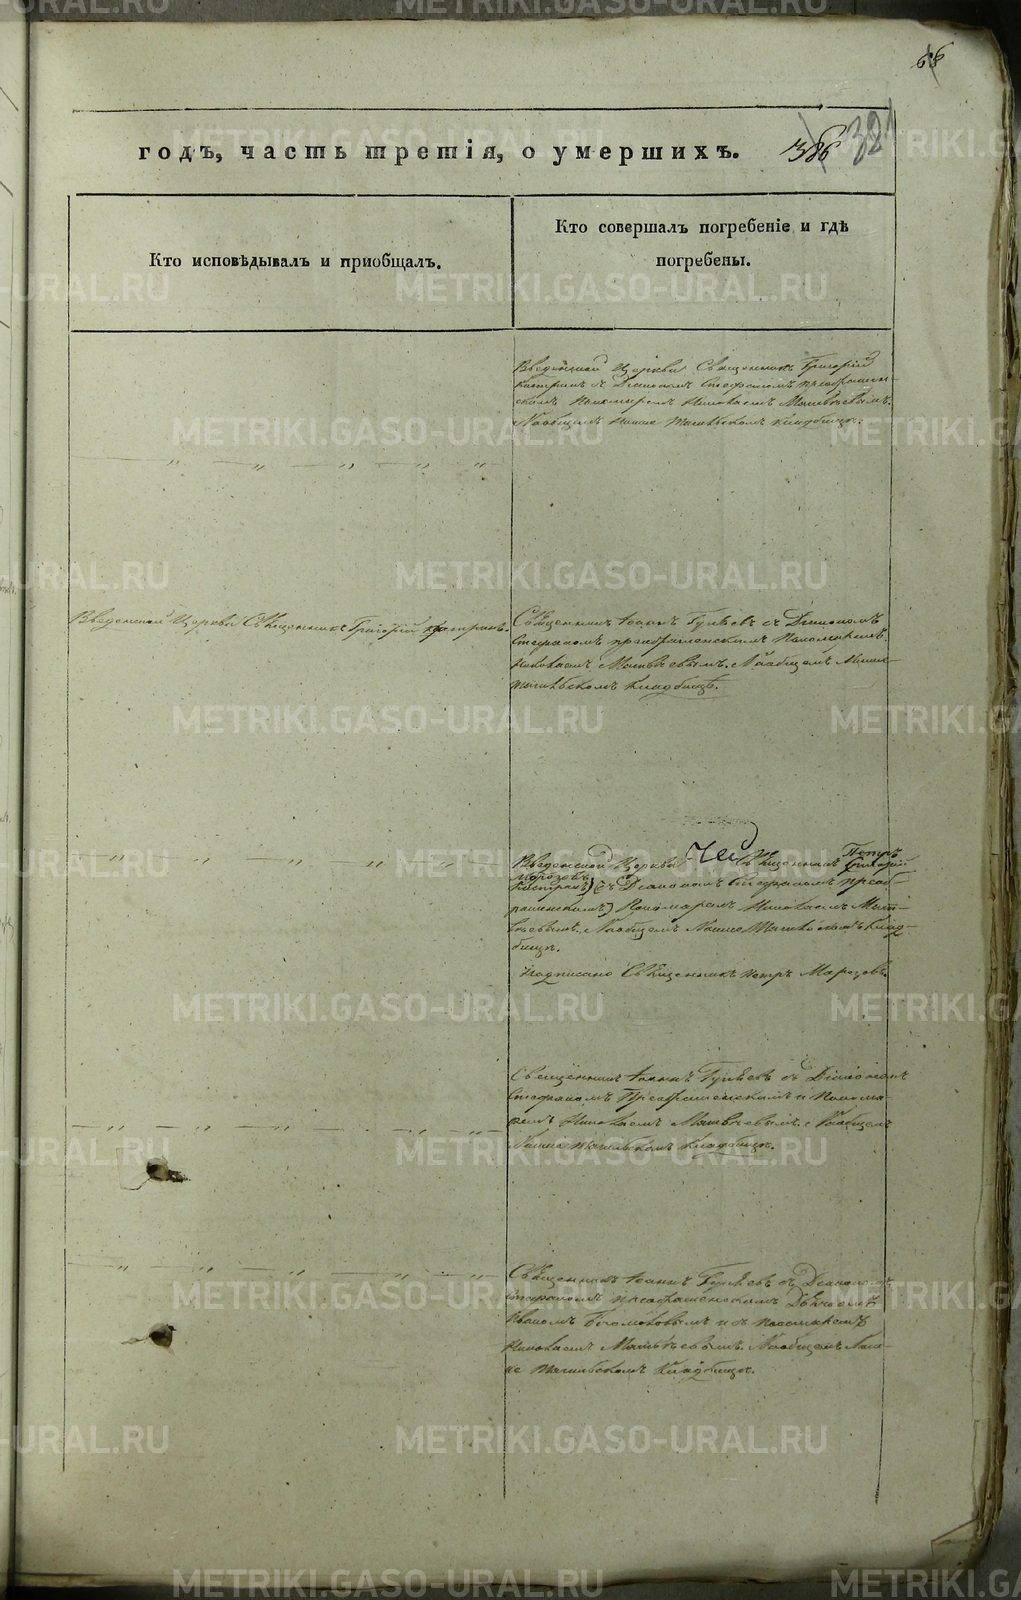 66
годъ, часть третія, о умершихъ. 386 32
Кто исповѣдывалъ и приобщалъ.
Кто совершалъ погребеніе и гдѣ
погребены.
Введенской Церкви Священникъ Григорій
съ Діакономъ Стефаномъ Преображен-
скимъ Пономаремъ Николаемъ Матвѣевымъ.
Наобщемъ Нижне Тагильскомъ Кладбищѣ.
Введенской Церкви Священникъ Григорій
Священникъ Іоаннъ Гулѣевъ съ Діакономъ
Стефаномъ Преображенскимъ Пономаремъ
Николаемъ Матвѣевымъ. Наобщемъ Нижне-
тагильскомъ Кладбищѣ.
Введенской Церкви Священникъ Петръ
Григорій
Морозовъ
съ Діакономъ Стефаномъ Преоб-
раженскимъ Пономаремъ Николаемъ Матв-
ѣевымъ. Наобщемъ Нижне Тагильскомъ Клад-
бищѣ.
Надписано Священникъ Петръ Морозовъ.
Священникъ Іоаннъ Гулѣевъ съ Діакономъ
Стефаномъ Преображенскимъ и Понома-
ремъ Николаемъ Матвѣевымъ. Наобщемъ
Нижне Тагильскомъ Кладбищѣ.
Священникъ Іоаннъ Гулѣевъ съ Діакономъ
Стефаномъ Преображенскимъ Дьячкомъ
Иваномъ и съ Пономаремъ
Николаемъ Матвѣевымъ. Наобщемъ Ниж-
не Тагильскомъ Кладбищѣ.
METRIKI.GASO-URAL.RU